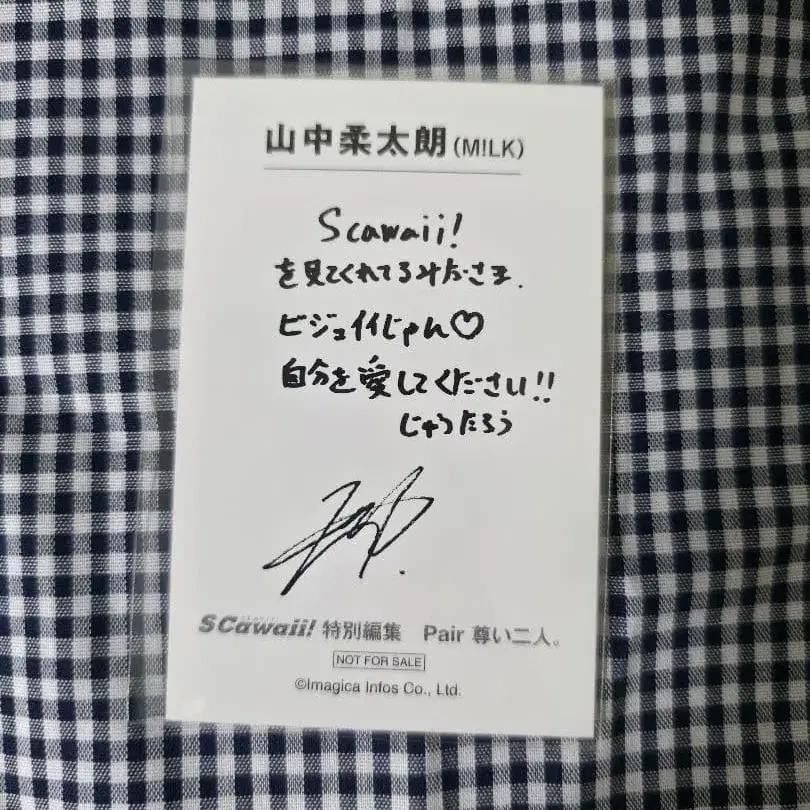 山中柔太朗(M!LK)
Scawaii!
を見てくれてるみなさま.
ビジュイイじゃん♡
自分を愛してください!!
じゅうたろう
SCawaii! 特別編集 Pair 尊い二人。
NOT FOR SALE
©Imagica Infos Co., Ltd.